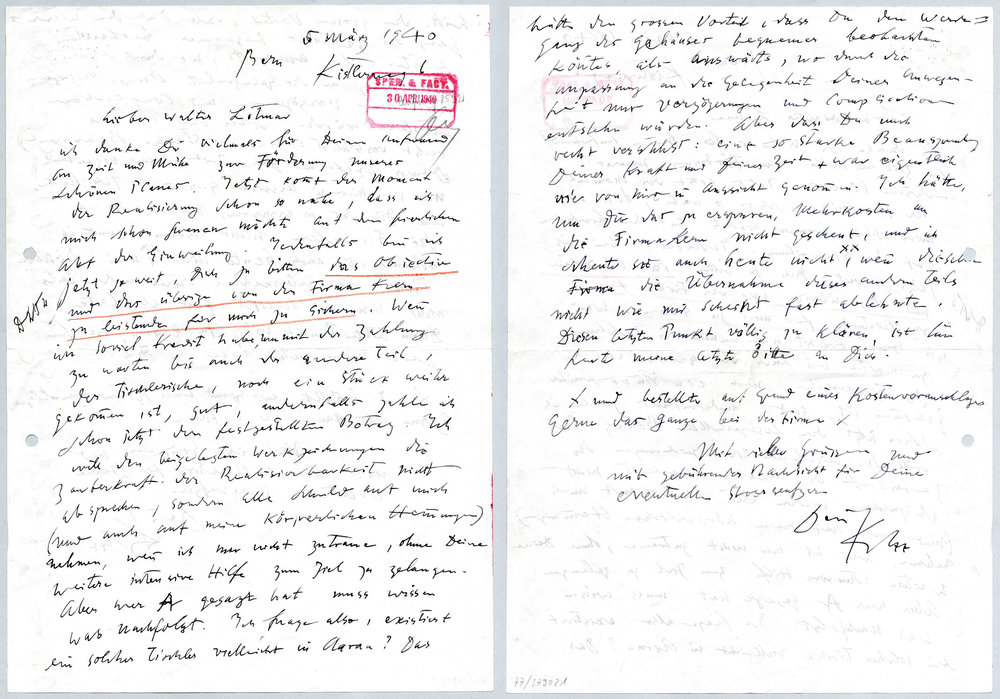 5 März 1940
Bern Kistlerweg 6
SPED. & FAKT.
30 APR 1940
Lieber Walter Lotmar
ich danke Dir vielmals für Deinen Aufwand
an Zeit und Mühe zur Förderung unseres
schönen Planes. Jetzt kommt der Moment
der Realisierung schon so nahe, dass ich
mich schon freuen möchte auf den feierlichen
Akt der Einweihung. Jedenfalls bin ich
jetzt so weit, Dich zu bitten das Objectiv
und das übrige von der Firma Kern
zu leistende für mich zu sichern. Wenn
ich soviel Kredit habe um mit der Zahlung
zu warten bis auch der andere Teil,
der Tischlerische, noch ein Stück weiter
gekommen ist, gut, andernfalls zahle ich
schon jetzt den festgestellten Betrag. Ich
will den beigelegten Werkzeichnungen die
Zauberkraft der Realisierbarkeit nicht
absprechen, sondern alle Schuld auf mich
(und auch auf meine körperlichen Hemungen)
nehmen, wenn ich mir nicht zutraue, ohne Deine
weitere intensive Hilfe zum Ziel zu gelangen.
Aber wer A gesagt hat muss wissen
was nachfolgt. Ich frage also, existiert
ein solcher Tischler vielleicht in Aarau? Das
hätte den grossen Vorteil, dass Du den Werde=
gang des Gehäuses bequemer beobachten
köntest, als auswärts, wo durch die
Anpassung an die Gelegenheit Deiner Anwesen-
heit nur Verzögerungen und Complicationen
entstehn würden. Aber dass Du mich
recht verstehst: eine so starke Beanspruchung
Deiner Kraft und Deiner Zeit war eigentlich
nie von mir in Aussicht genommen. Ich hätte,
um Dir das zu ersparen, Mehrkosten an
die Firma Kern nicht gescheut, und ich
scheute sie auch heute nicht xx, wenn dieselbe
Firma die Übernahme dieses andern Teils
nicht wie mir scheint fast ablehnte.
Diesen letzten Punkt völlig zu klären, ist für
heute meine letzte Bitte an Dich.
x und bestellte auf Grund eines Kostenvoranschlages
gerne das ganze bei der Firma x
Mit vielen Grüssen und
mit gebührender Nachsicht für Deine
eventuellen Stossseufzer
Dein
77/373021